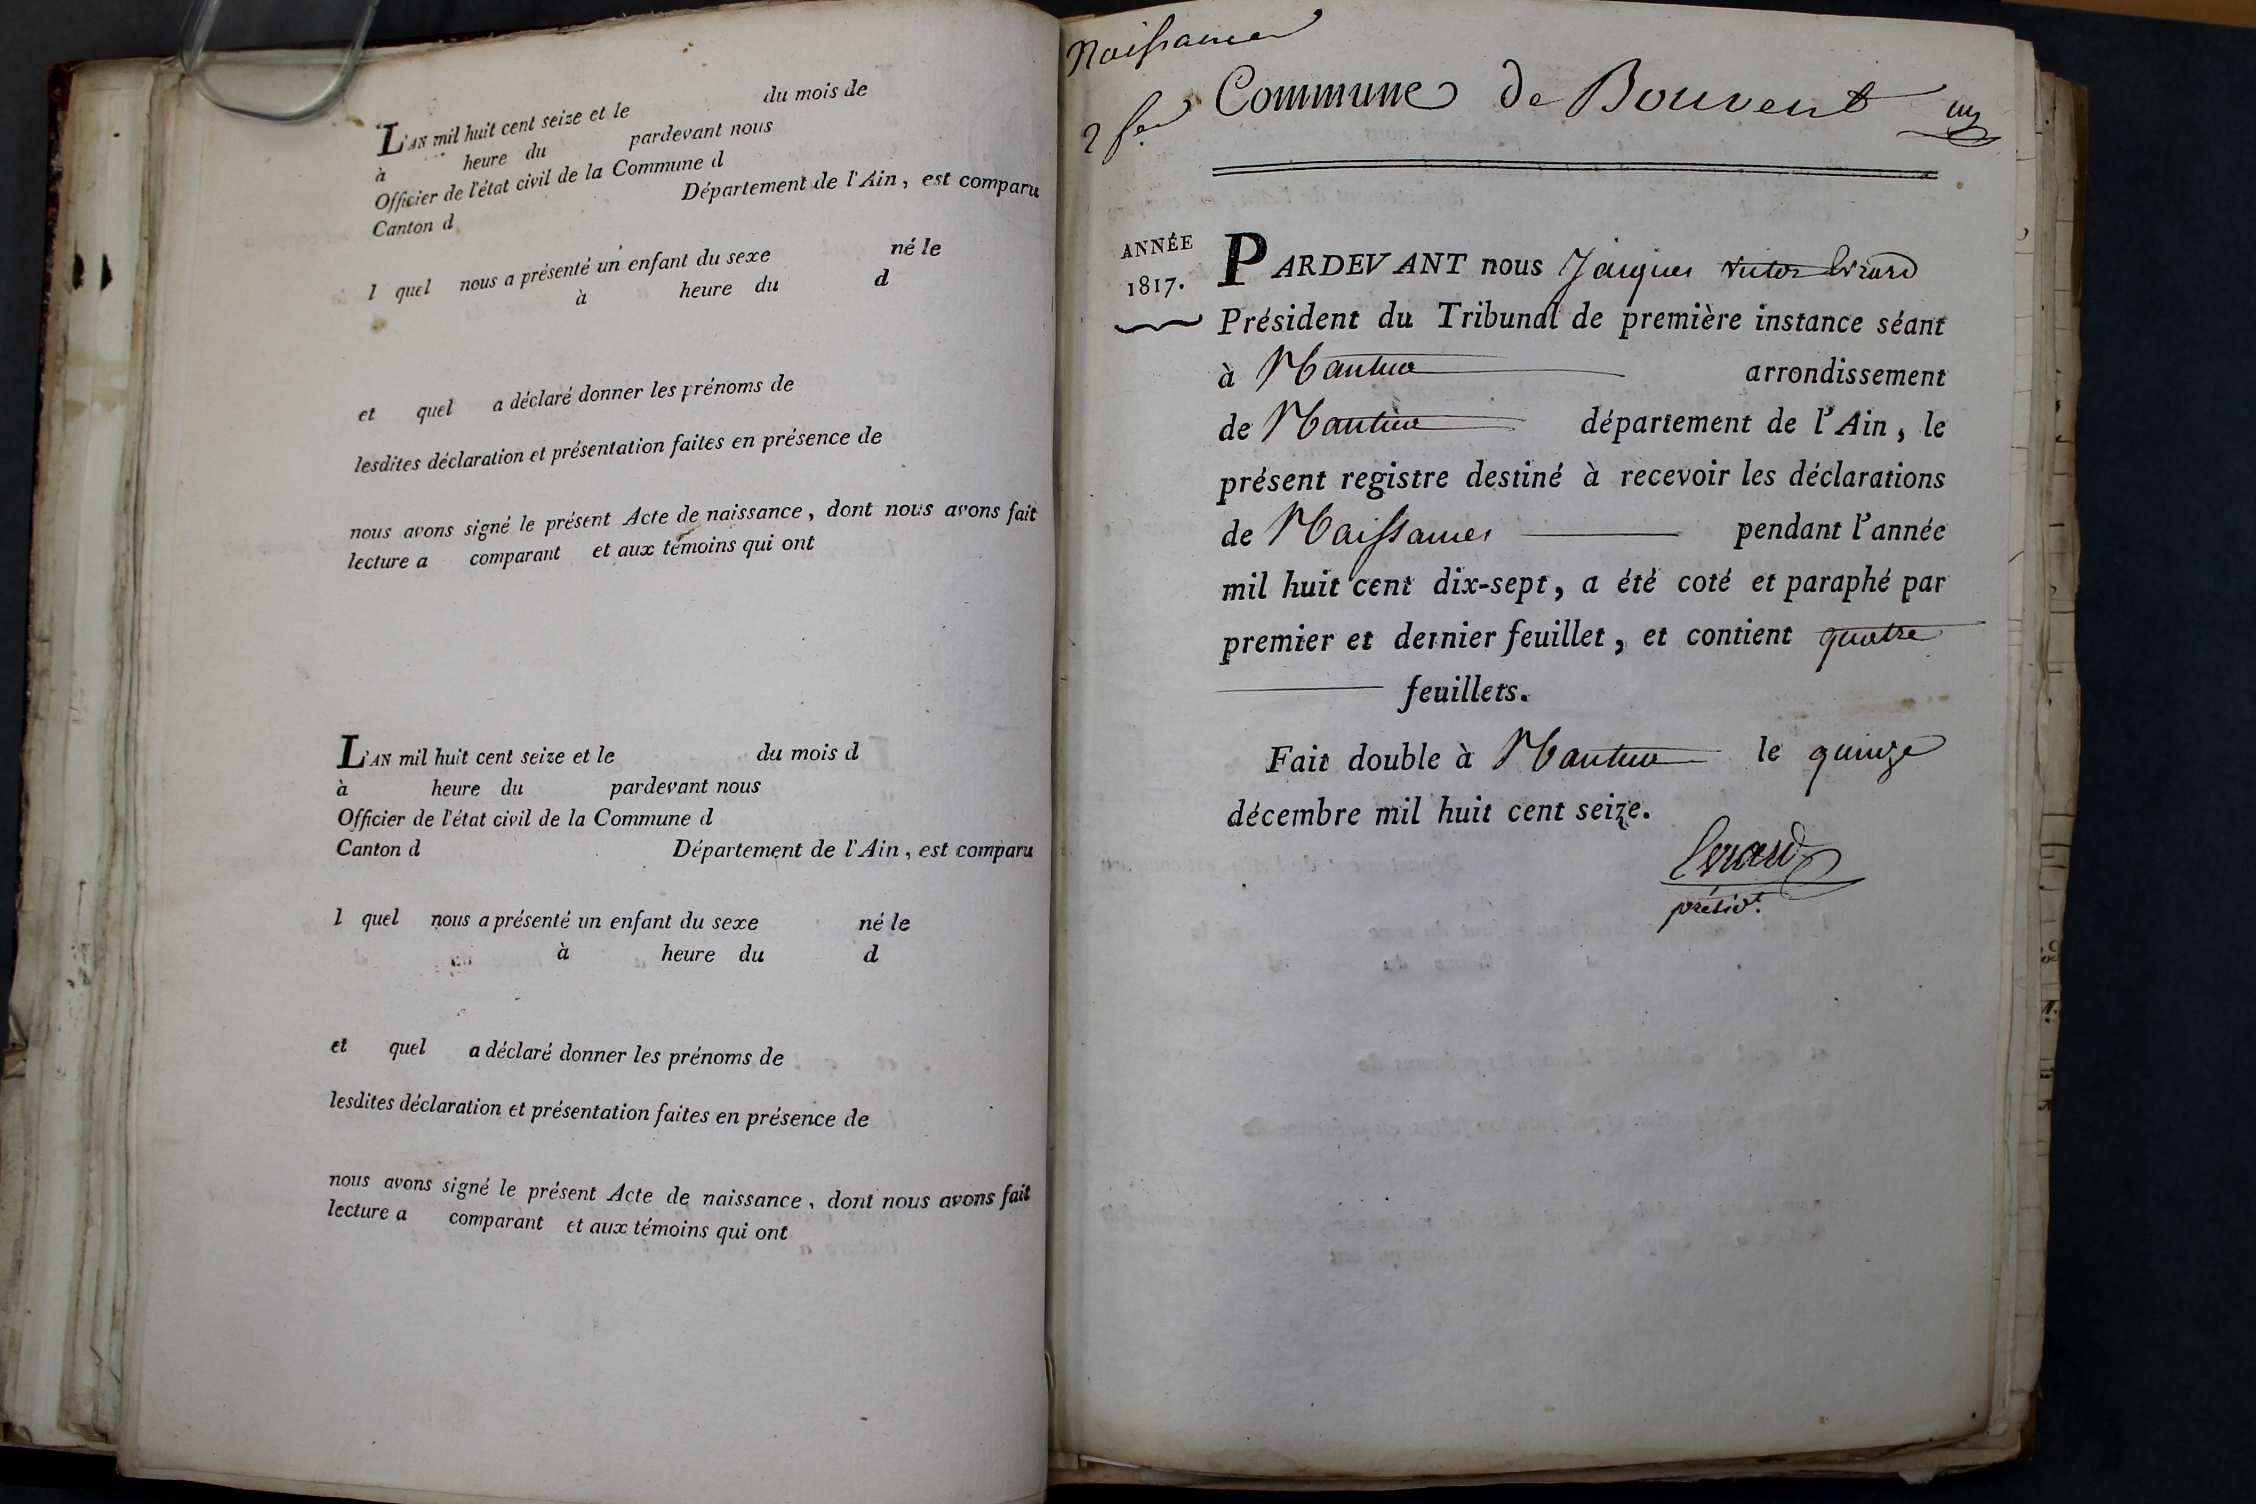 L'AN mil huit cent seize et le du mois de
à heure du pardevant nous
Officier de l'état civil de la Commune d
Canton d Département de l'Ain, est comparu
l quel nous a présenté un enfant du sexe né le
à heure du d
et quel a déclaré donner les prénoms de
lesdites déclaration et présentation faites en présence de
nous avons signé le présent Acte de naissance, dont nous avons fait
lecture a comparant et aux témoins qui ont
L'AN mil huit cent seize et le du mois d
à heure du pardevant nous
Officier de l'état civil de la Commune d
Canton d Département de l'Ain, est comparu
l quel nous a présenté un enfant du sexe né le
à heure du d
et quel a déclaré donner les prénoms de
lesdites déclaration et présentation faites en présence de
nous avons signé le présent Acte de naissance, dont nous avons fait
lecture a comparant et aux témoins qui ont
Naissances
Commune de Bouvent
ANNÉE
1817.
PARDEVANT nous Jacques Victor Evrard
Président du Tribunal de première instance séant
à Nantua arrondissement
de Nantua département de l'Ain, le
présent registre destiné à recevoir les déclarations
de Naissances pendant l'année
mil huit cent dix-sept, a été coté et paraphé par
premier et dernier feuillet, et contient quatre
feuillets.
Fait double à Nantua le quinze
décembre mil huit cent seize.
Evrard
présidt.